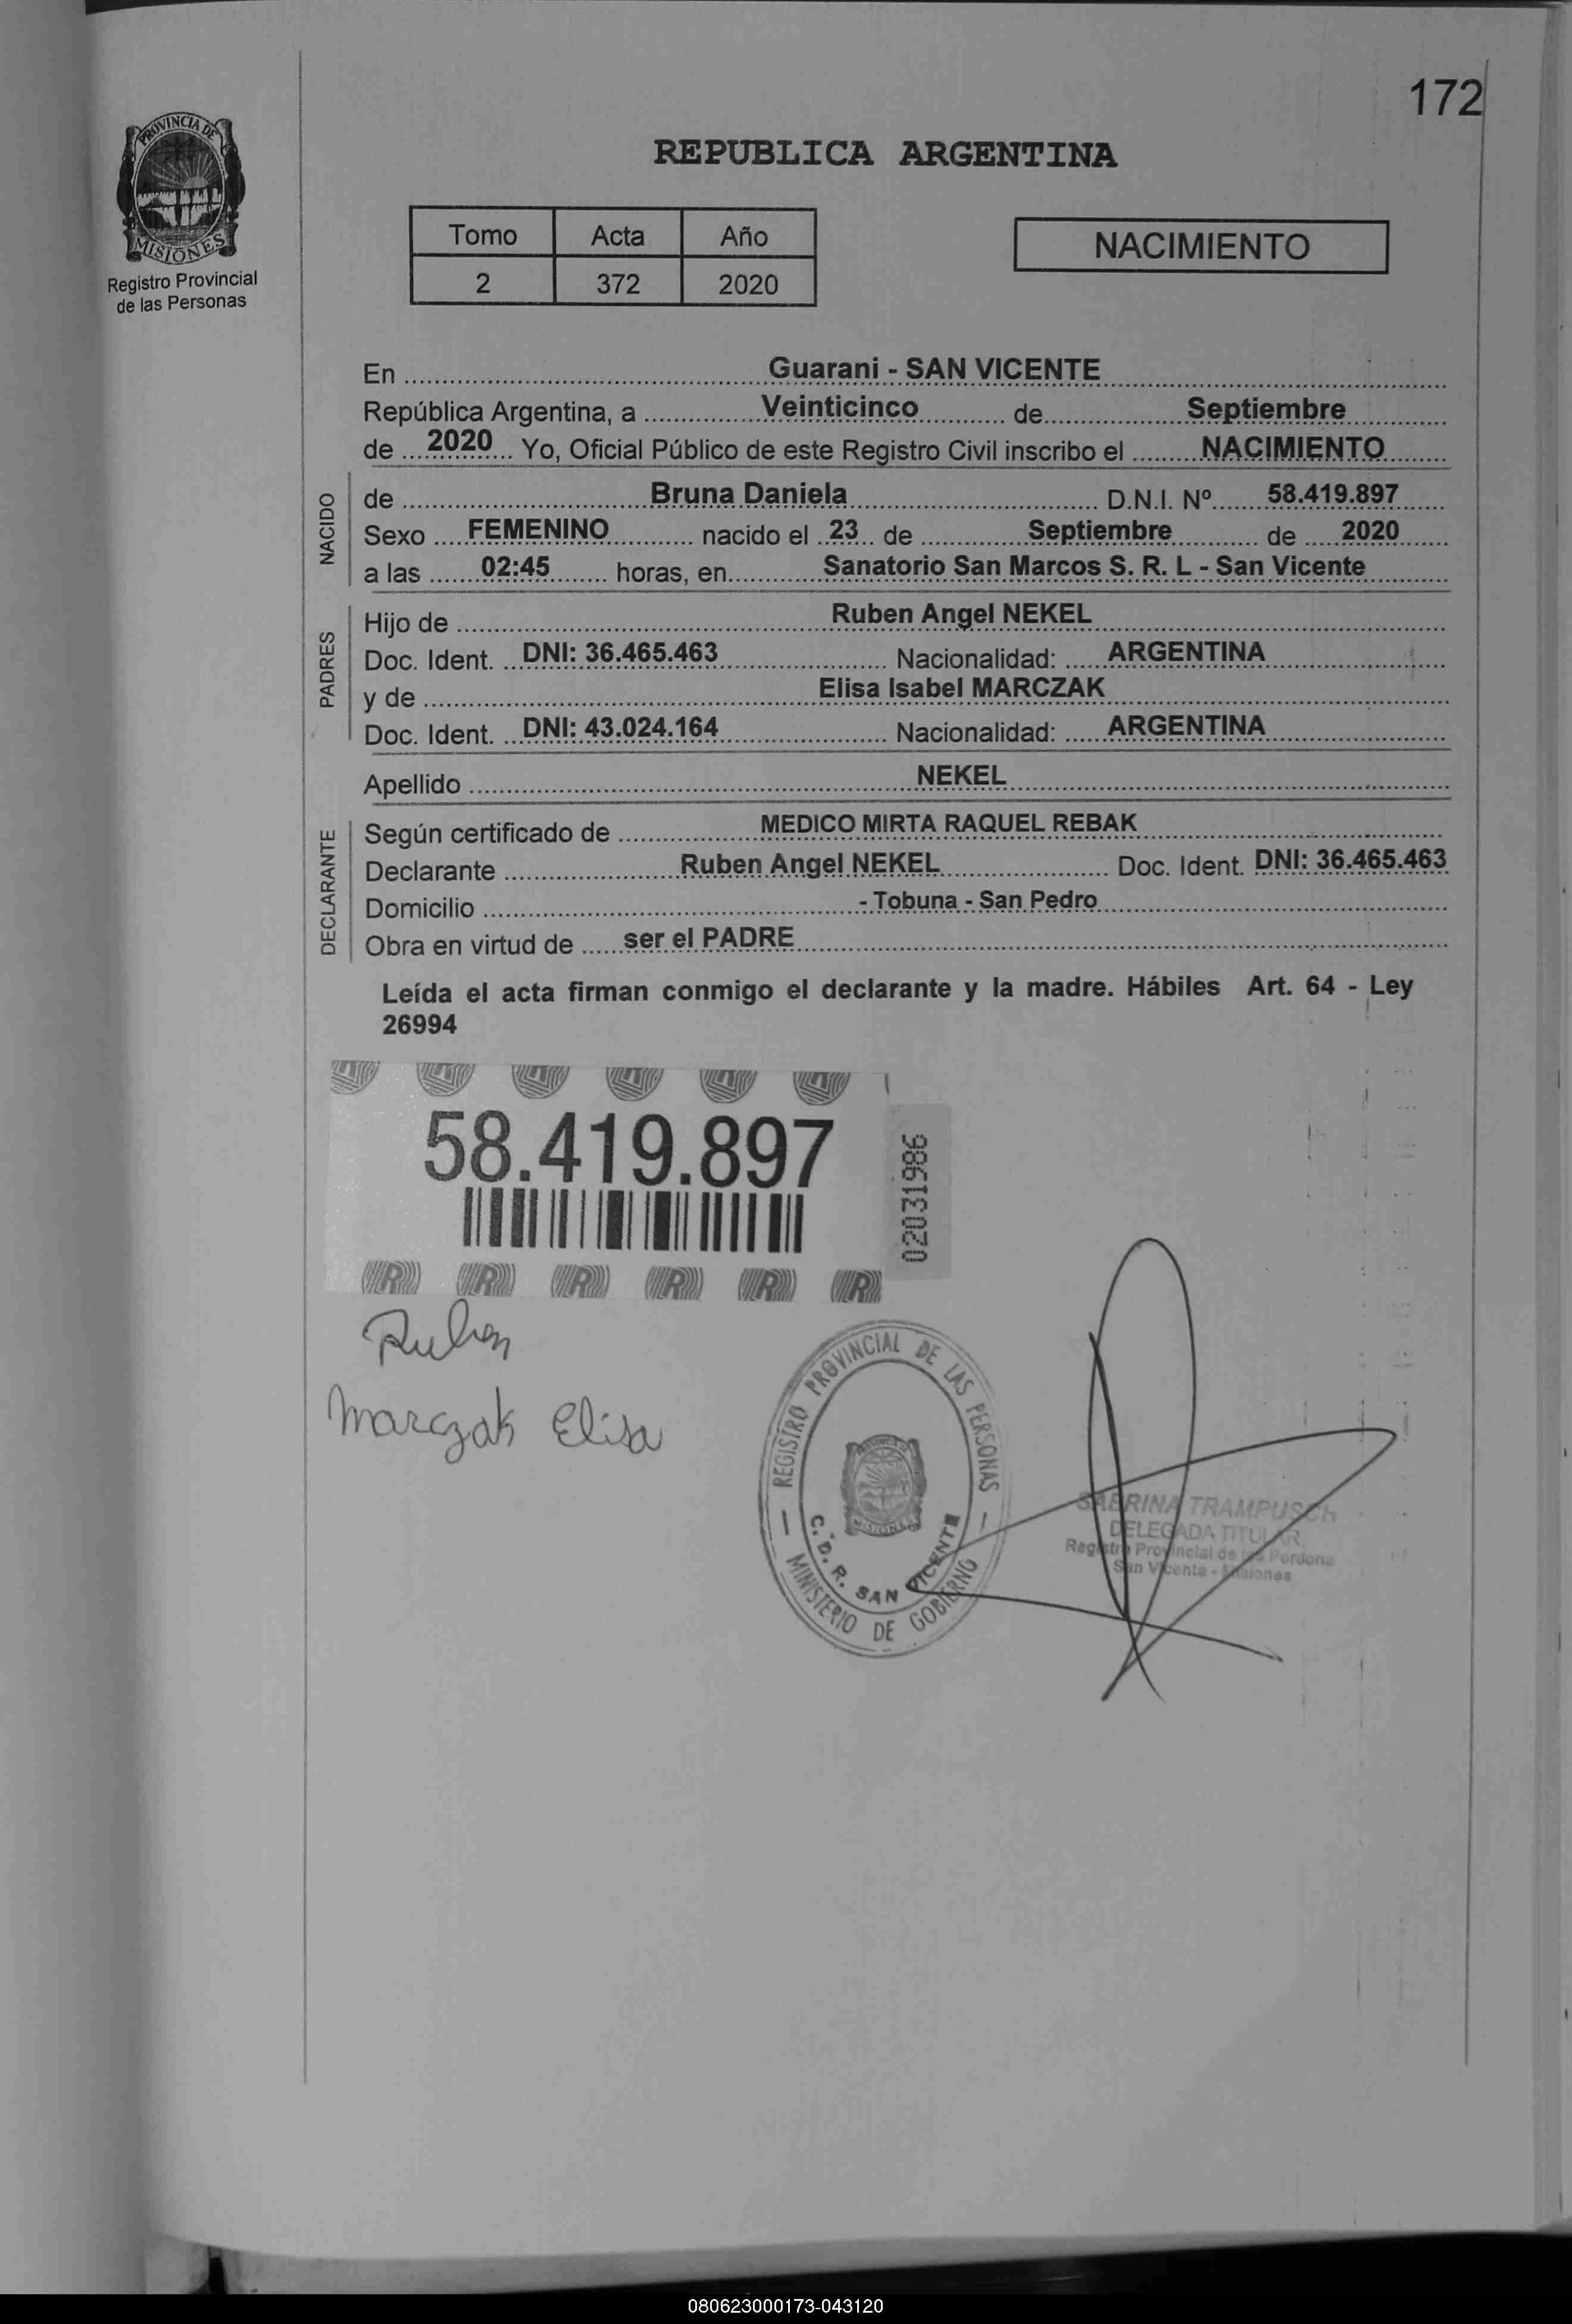 172
PROVINCIA DE
MISIONES
Registro Provincial
de las Personas
REPUBLICA ARGENTINA
Tomo Acta Año
2 372 2020
NACIMIENTO
En ........ Guarani - SAN VICENTE ........
República Argentina, a ........ Veinticinco ........ de ........ Septiembre ........
de .... 2020 .... Yo, Oficial Público de este Registro Civil inscribo el ........ NACIMIENTO ........
NACIDO
de ........ Bruna Daniela ........ D.N.I. Nº ........ 58.419.897 ........
Sexo .... FEMENINO ........ nacido el .. 23 .. de ........ Septiembre ........ de .... 2020 ....
a las ...... 02:45 ...... horas, en ........ Sanatorio San Marcos S. R. L - San Vicente ........
PADRES
Hijo de ........ Ruben Angel NEKEL ........
Doc. Ident. .. DNI: 36.465.463 ........ Nacionalidad: .... ARGENTINA ........
y de ........ Elisa Isabel MARCZAK ........
Doc. Ident. .. DNI: 43.024.164 ........ Nacionalidad: .... ARGENTINA ........
Apellido ........ NEKEL ........
DECLARANTE
Según certificado de ........ MEDICO MIRTA RAQUEL REBAK ........
Declarante ........ Ruben Angel NEKEL ........ Doc. Ident. DNI: 36.465.463
Domicilio ........ - Tobuna - San Pedro ........
Obra en virtud de .... ser el PADRE ........
Leída el acta firman conmigo el declarante y la madre. Hábiles Art. 64 - Ley
26994
58.419.897
02031986
Ruben
Marczak Elisa
REGISTRO PROVINCIAL DE LAS PERSONAS
MISIONES
C. D. R. SAN VICENTE
MINISTERIO DE GOBIERNO
SABRINA TRAMPUSCh
DELEGADA TITULAR
Registro Provincial de las Persona
San Vicente - Misiones
080623000173-043120